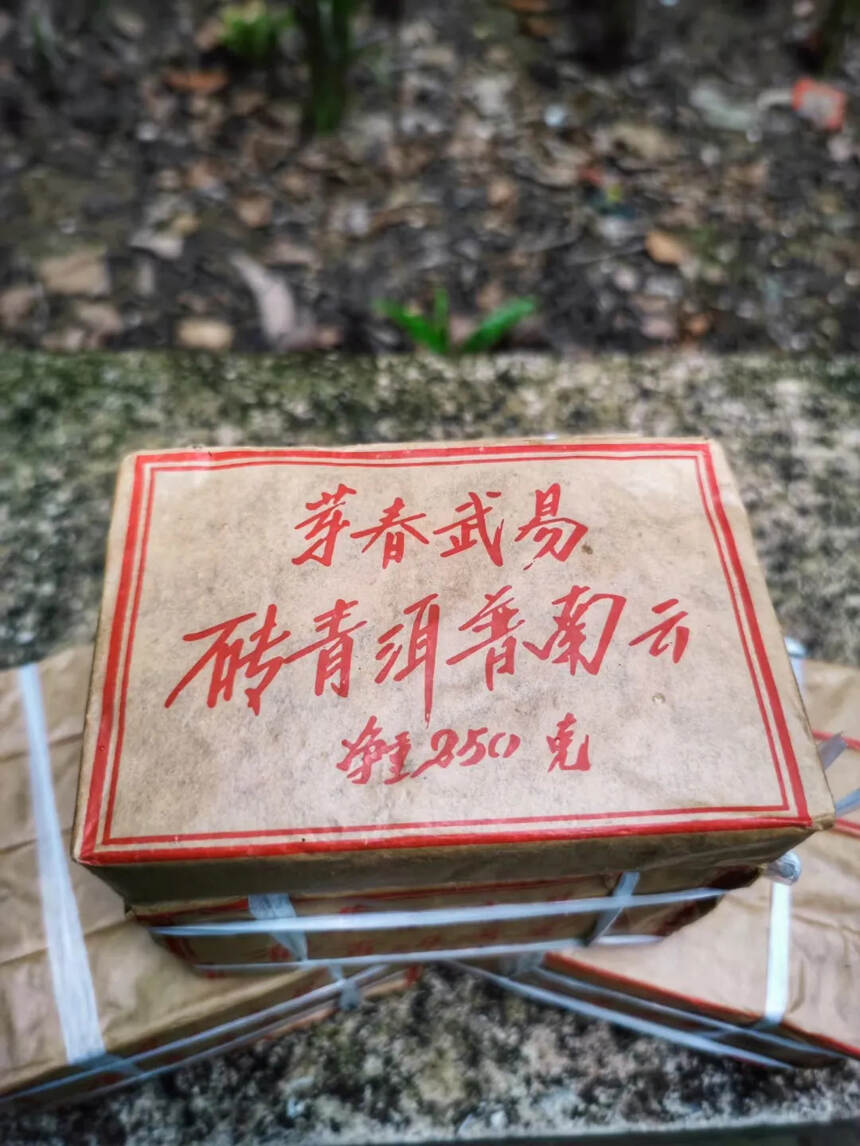 易武春芽
云南普洱青砖
净重250克